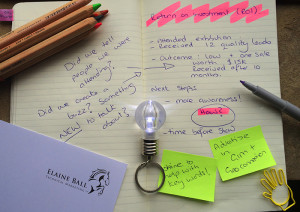 Did we tell
people we were
attending?
Did we create a
buzz? Something
NEW to talk
about?
Return on Investment (ROI)
- Attended exhibition
- Received 12 quality leads
- Outcome: Low - one sale
worth £15K
Received after 10
months.
Next Steps
- more awareness!
How?
- time before show
ELAINE BALL
help with
key words!
Advertise
in